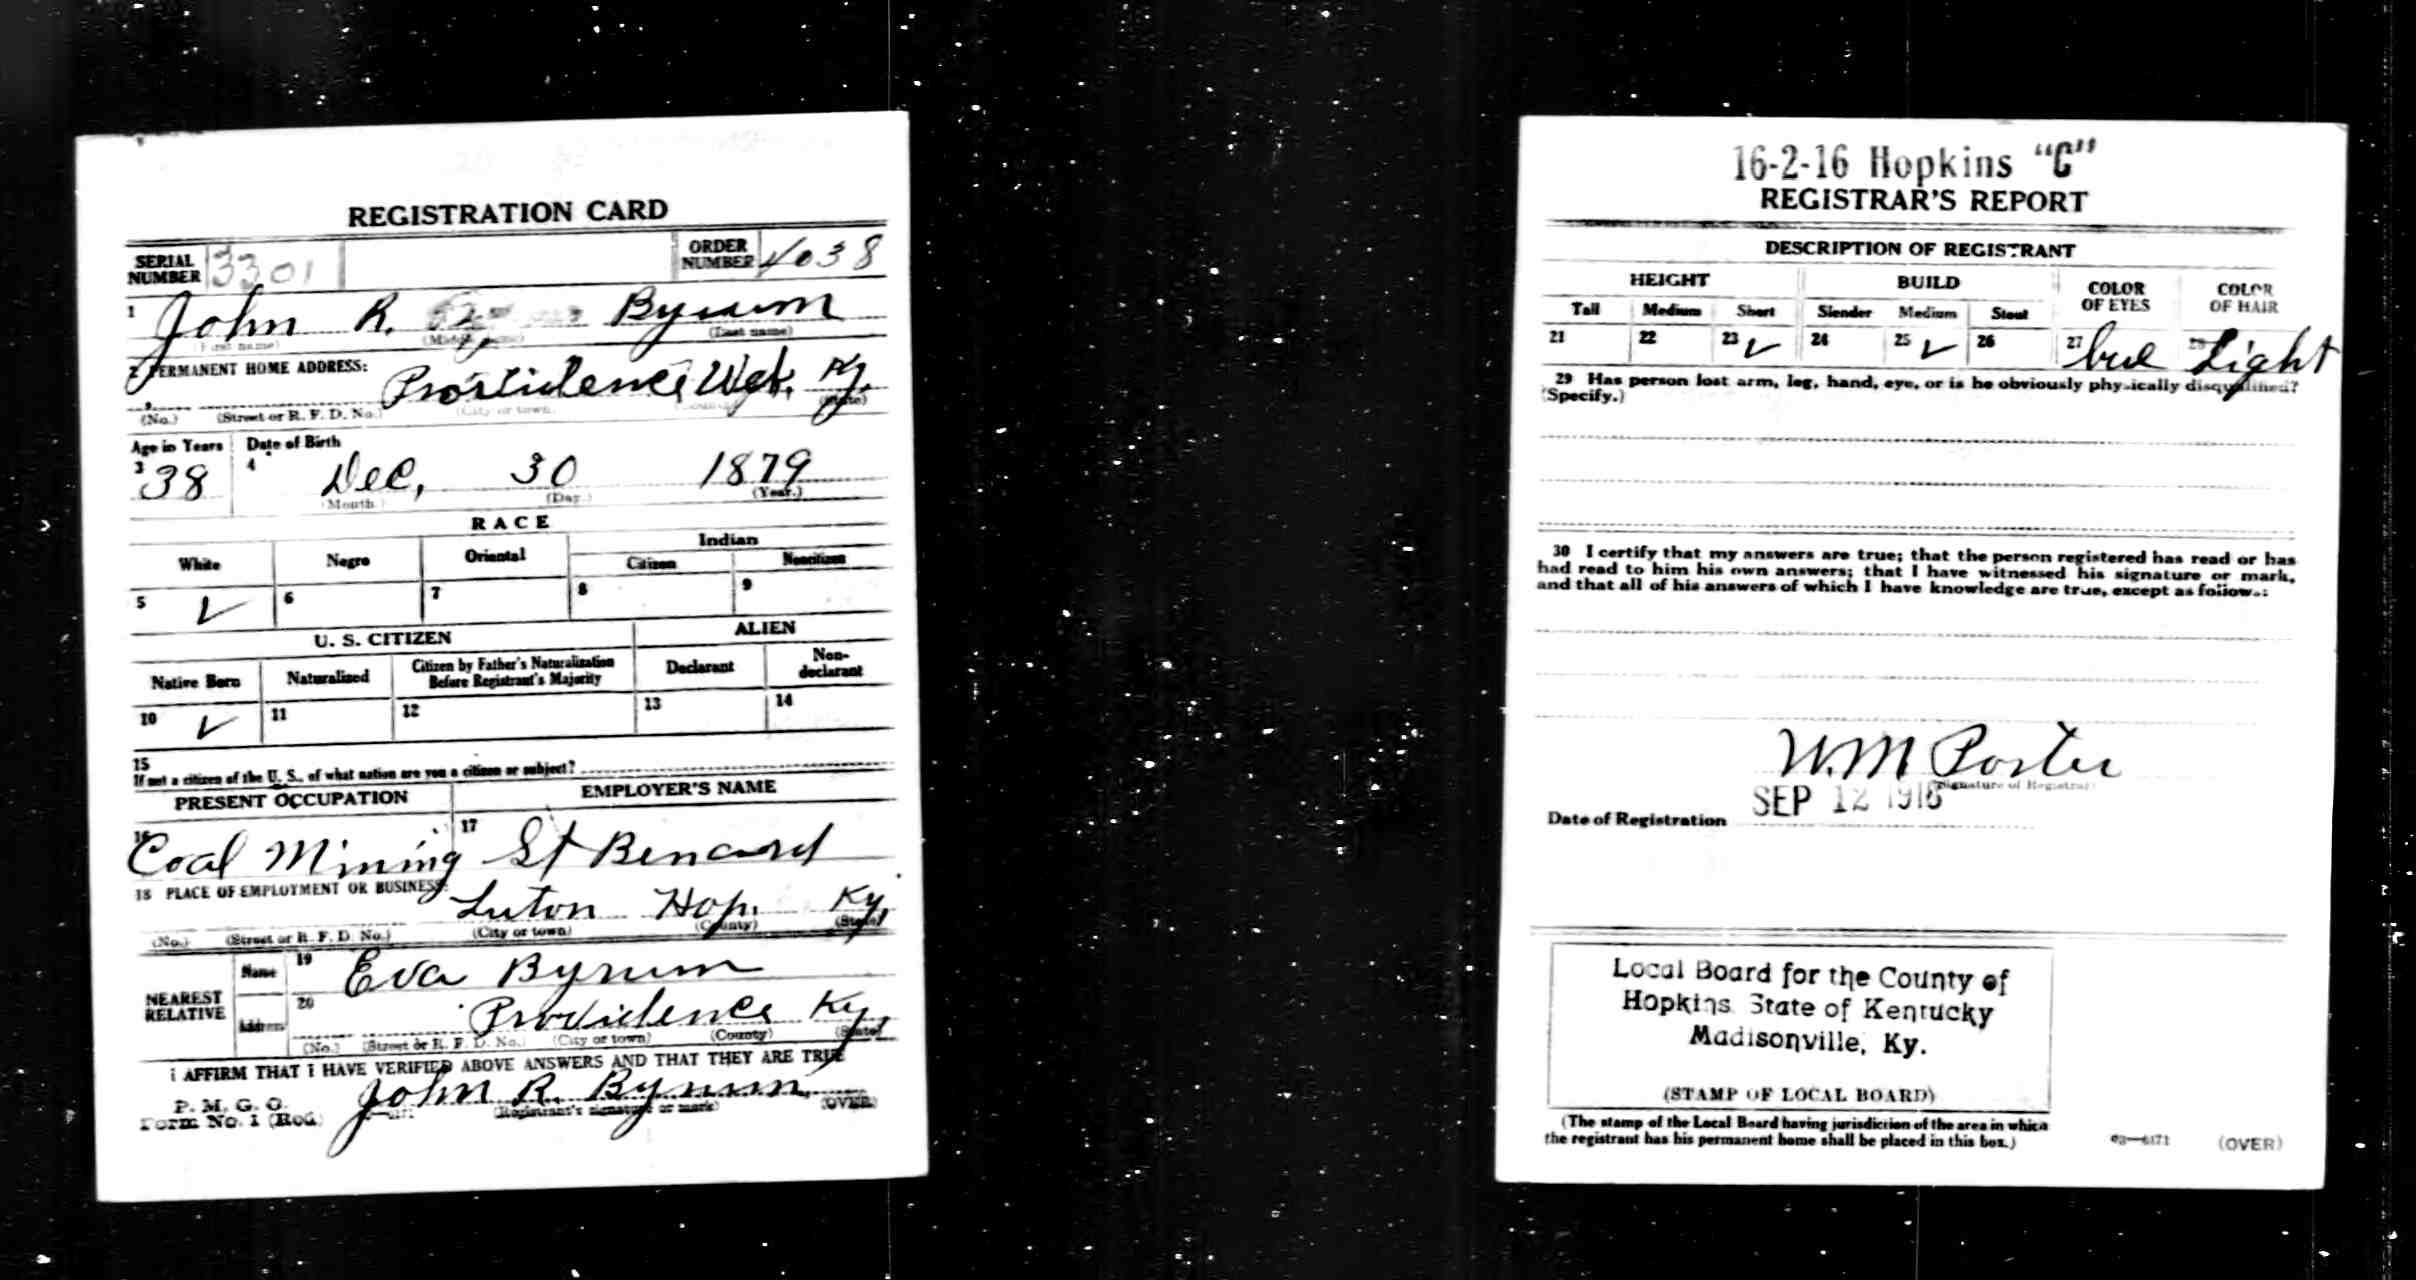 REGISTRATION CARD
SERIAL NUMBER 3301 ORDER NUMBER 4038
1 John R. Byrum
(First name) (Middle name) (Last name)
2 PERMANENT HOME ADDRESS:
Providence Web. Ky.
(No.) (Street or R. F. D. No.) (City or town) (County) (State)
Age in Years Date of Birth
3 38 4 Dec, 30 1879
(Month.) (Day.) (Year.)
RACE
White Negro Oriental Indian
Citizen Noncitizen
5 ✓ 6 7 8 9
U. S. CITIZEN ALIEN
Native Born Naturalized Citizen by Father's Naturalization Before Registrant's Majority Declarant Non-declarant
10 ✓ 11 12 13 14
15
If not a citizen of the U. S., of what nation are you a citizen or subject?
PRESENT OCCUPATION EMPLOYER'S NAME
16 Coal Mining 17 St Benard
18 PLACE OF EMPLOYMENT OR BUSINESS:
Luton Hop. Ky.
(No.) (Street or R. F. D. No.) (City or town) (County) (State)
NEAREST RELATIVE
Name 19 Eva Byrum
Address 20 Providence Ky.
(No.) (Street or R. F. D. No.) (City or town) (County) (State)
I AFFIRM THAT I HAVE VERIFIED ABOVE ANSWERS AND THAT THEY ARE TRUE
P. M. G. O.
Form No. 1 (Red) John R. Byrum
(Registrant's signature or mark) (OVER)
16-2-16 Hopkins "C"
REGISTRAR'S REPORT
DESCRIPTION OF REGISTRANT
HEIGHT BUILD COLOR OF EYES COLOR OF HAIR
Tall Medium Short Slender Medium Stout
21 22 23 ✓ 24 25 ✓ 26 27 blue 28 Light
29 Has person lost arm, leg, hand, eye, or is he obviously physically disqualified?
(Specify.)
30 I certify that my answers are true; that the person registered has read or has
had read to him his own answers; that I have witnessed his signature or mark,
and that all of his answers of which I have knowledge are true, except as follows:
W.M Porter
(Signature of Registrar)
Date of Registration SEP 12 1918
Local Board for the County of
Hopkins State of Kentucky
Madisonville, Ky.
(STAMP OF LOCAL BOARD)
(The stamp of the Local Board having jurisdiction of the area in which
the registrant has his permanent home shall be placed in this box.)
03—6171 (OVER)